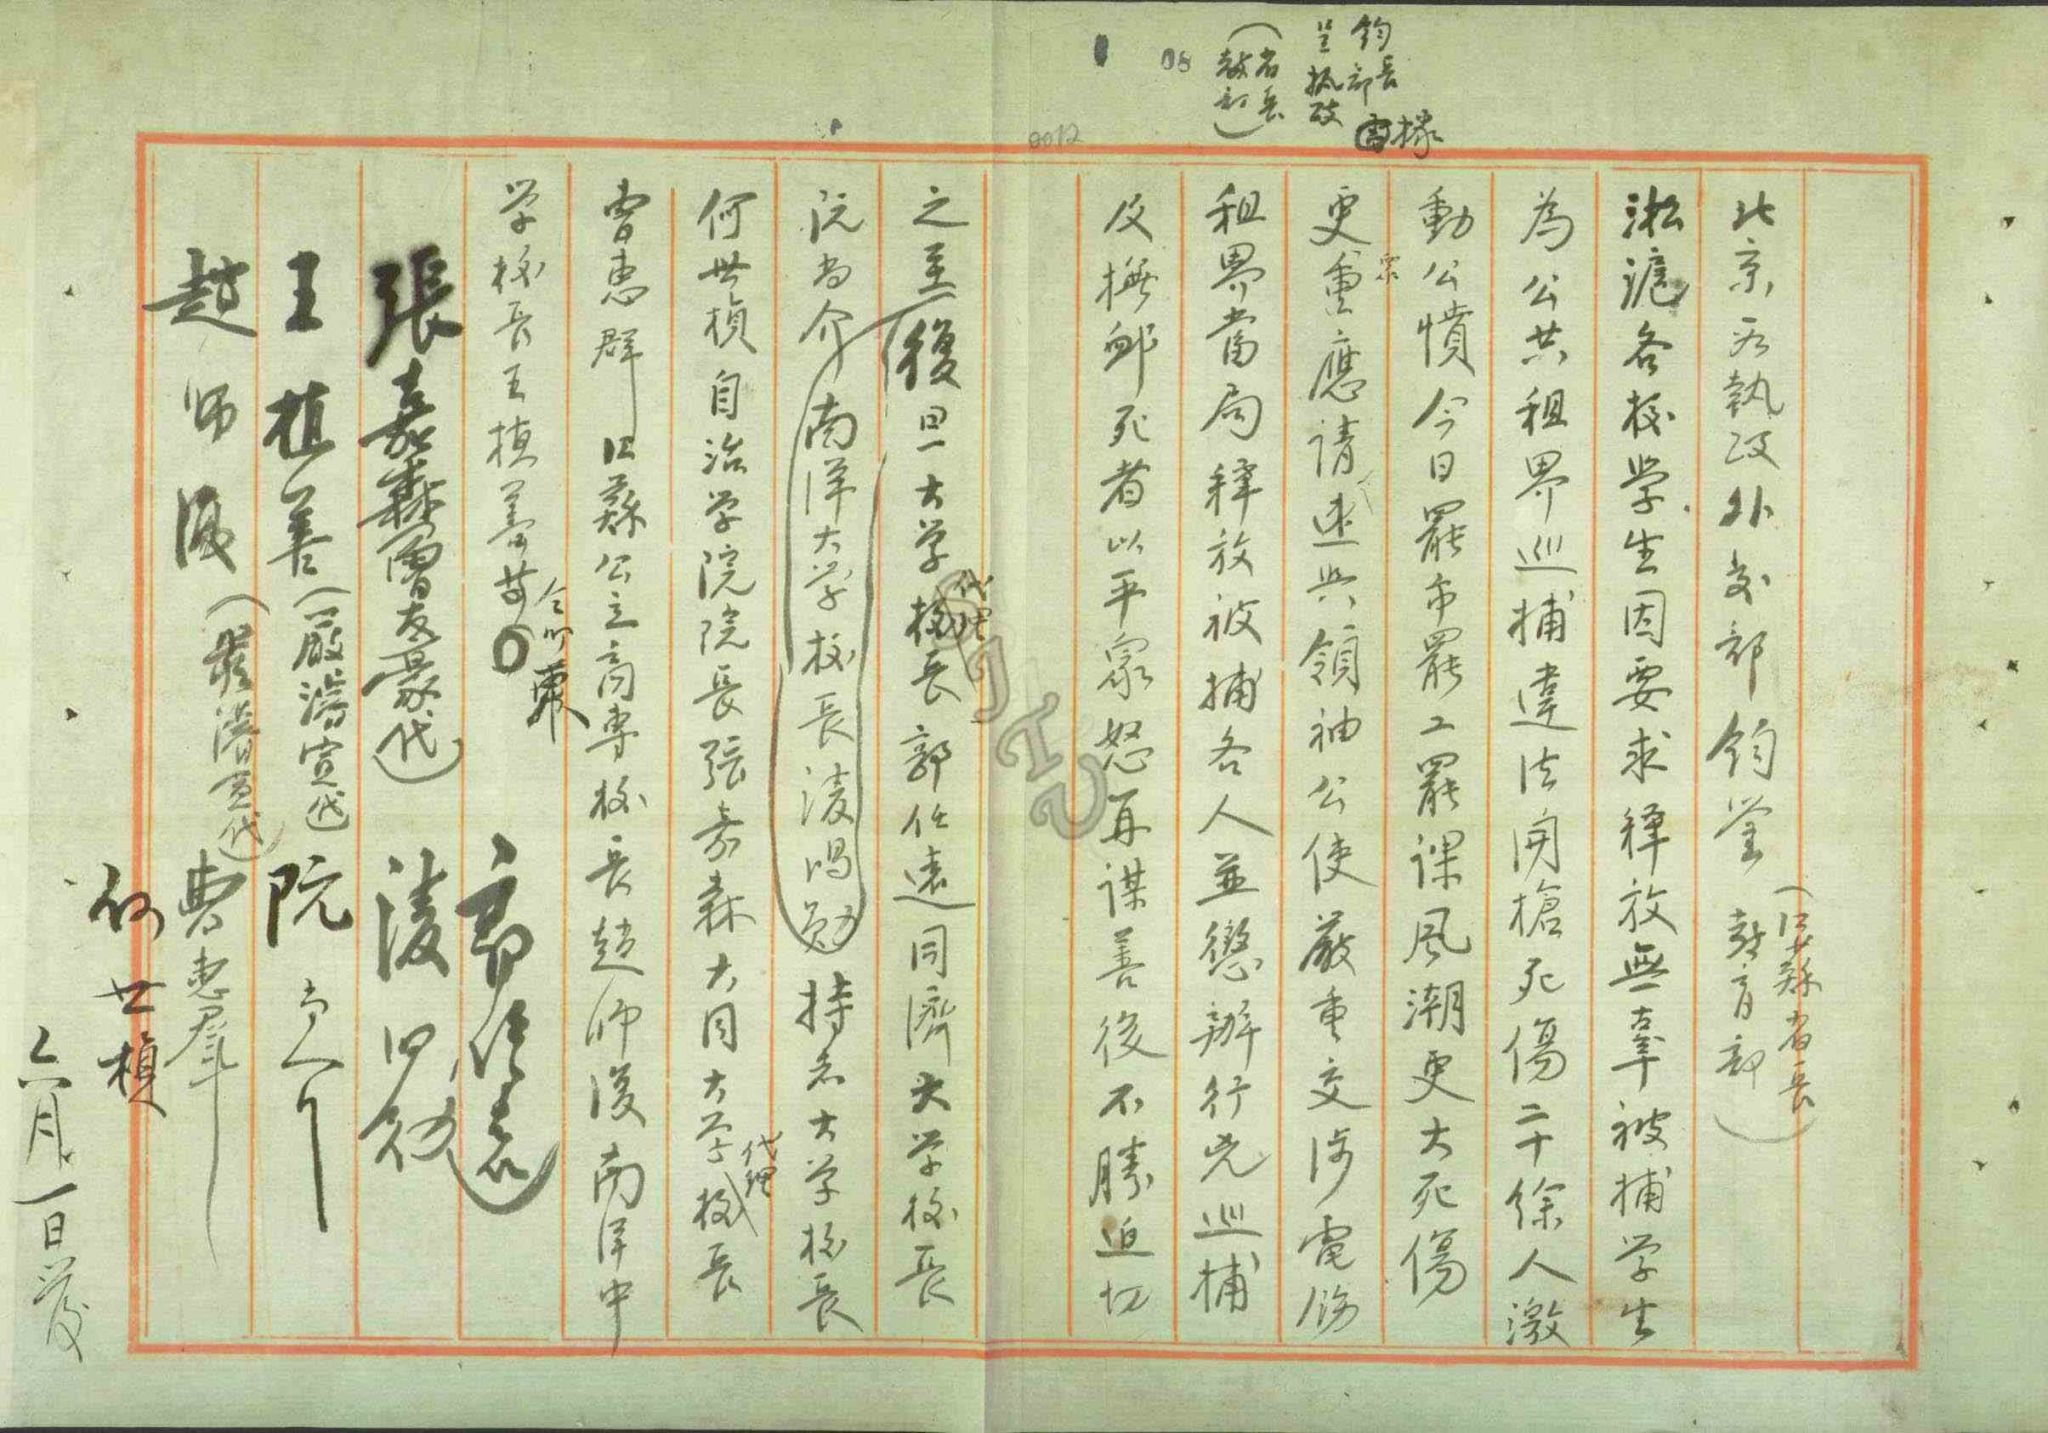 鈞長
呈部
執政
（省長
教部）
08
0072
北京 執政外交部鈞鑒
（江蘇省長
教育部）
淞滬各校学生因要求釋放無辜被捕学生
為公共租界巡捕違法開槍死傷二十餘人激
動公憤今日罷市罷工罷課風潮更大死傷
更重應請速與領袖公使嚴重交涉電飭
租界當局釋放被捕各人並懲辦行兇巡捕
及撫卹死者以平衆怒再謀善後不勝迫切
之至復旦大学校長郭任遠同濟大学校長
代理
阮尚介南洋大学校長凌鴻勛持志大学校長
何世楨自治学院院長張嘉森大同大学校長
代理
曹惠群江蘇公立商專校長趙師復南洋中
学校長王植善
仝叩東
郭任遠
張嘉森（曹友豪代）
凌鴻勛
王植善（嚴濬宣代）
阮尚介
趙師復（嚴濬宣代）
曹惠羣
何世楨
六月一日發
SJTU